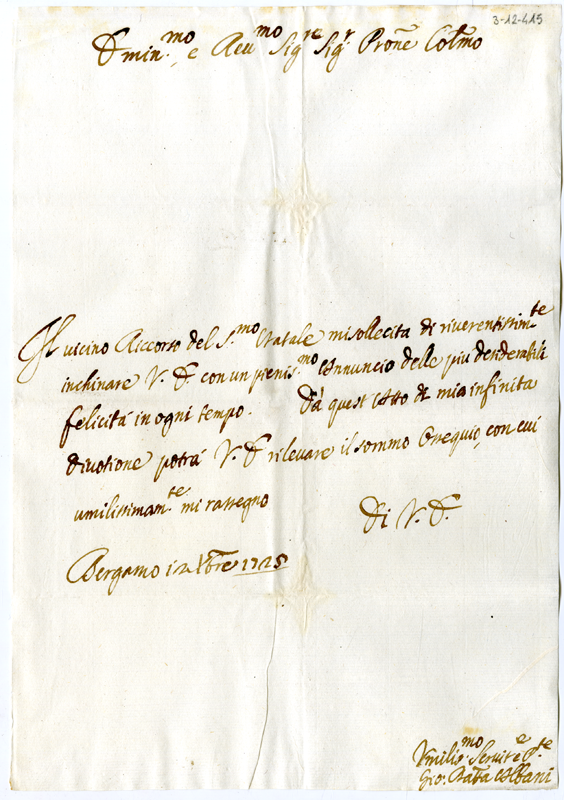 3-12-415
Emin.mo, e Reu.mo Sig.re Sig.r Prone Colmo
Il vicino Riccorso del S.mo Natale mi sollecita di riverentissim.te
inchinare V. E. con un pienis.mo Annuncio delle più desiderabili
felicità in ogni tempo. Da quest'Atto di mia infinita
divotione potrà V. E. rilevare il sommo Ossequio, con cui
umilissimam.te mi rassegno
Di V. E.
Bergamo 12 Xbre 1725
Vmilis.mo Servit.e
Gio: Batta Albani